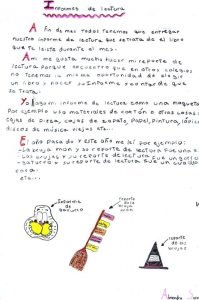 Informes de lectura
A fin de mes todos tenemos que entregar
nuestro informe de lectura que se trata de el libro
que te leiste durante el mes.
A mi me gusta mucho hacer mi reporte de
lectura porque encuentro que en otros colegios
no tenemos la misma oportunidad de elegir
un libro y hacer su informe y contar de que
se trata.
Yo hago mi informe de lectura como una maqueta
Por ejemplo uso materiales de cartón o otras cosas:
cajas de pizza, cajas de zapato, papel, pintura, lápiz
discos de música viejos etc...
El año pasado y este año me leí por ejemplo:
- La bruja mon y su reporte de lectura fue una
- Las brujas y su reporte de lectura fue un gorro
- Baturro y su reporte de lectura fue un
para.
etc...
Informe
de
baturro
reporte
de la
bruja
mon
reporte
de las
brujas